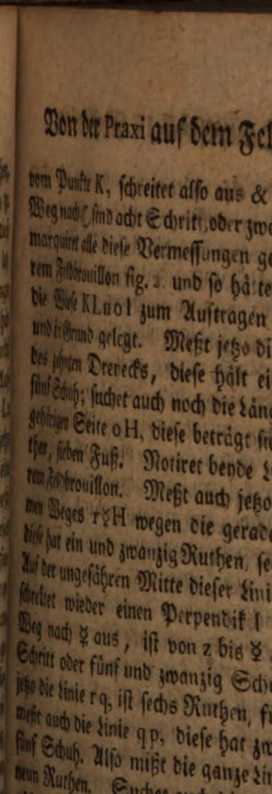 Von der Praxi auf dem Fel
vom Punkte K, schreitet also aus &
Weg nach sind acht Schritt, oder zwe
marquiret alle diese Vermessungen ge
rem Feldbrouillon fig. 2. und so hätte
die Wiese KLuol zum Auftragen
und in Grund gelegt. Meßt jetzo di
des zehnten Dreyecks, diese hält ei
fünf Schuh; suchet auch noch die Län
gehörigen Seite oH, diese beträgt
sieben Fuß. Notiret beyde
rem Feldbrouillon. Meßt auch jetzo
Weges H wegen die gerade
diese hat ein und zwanzig Ruthen, se
Auf der ungefähren Mitte dieser Lini
schreitet wieder einen Perpendik l
Weg nach aus, ist von z bis
Schritt oder fünf und zwanzig Sch
jetzo die Linie rq, ist sechs Ruthen, f
meßt auch die Linie qp, diese hat zw
fünf Schuh. Also mißt die ganze Lin
neun Ruthen. Suchet